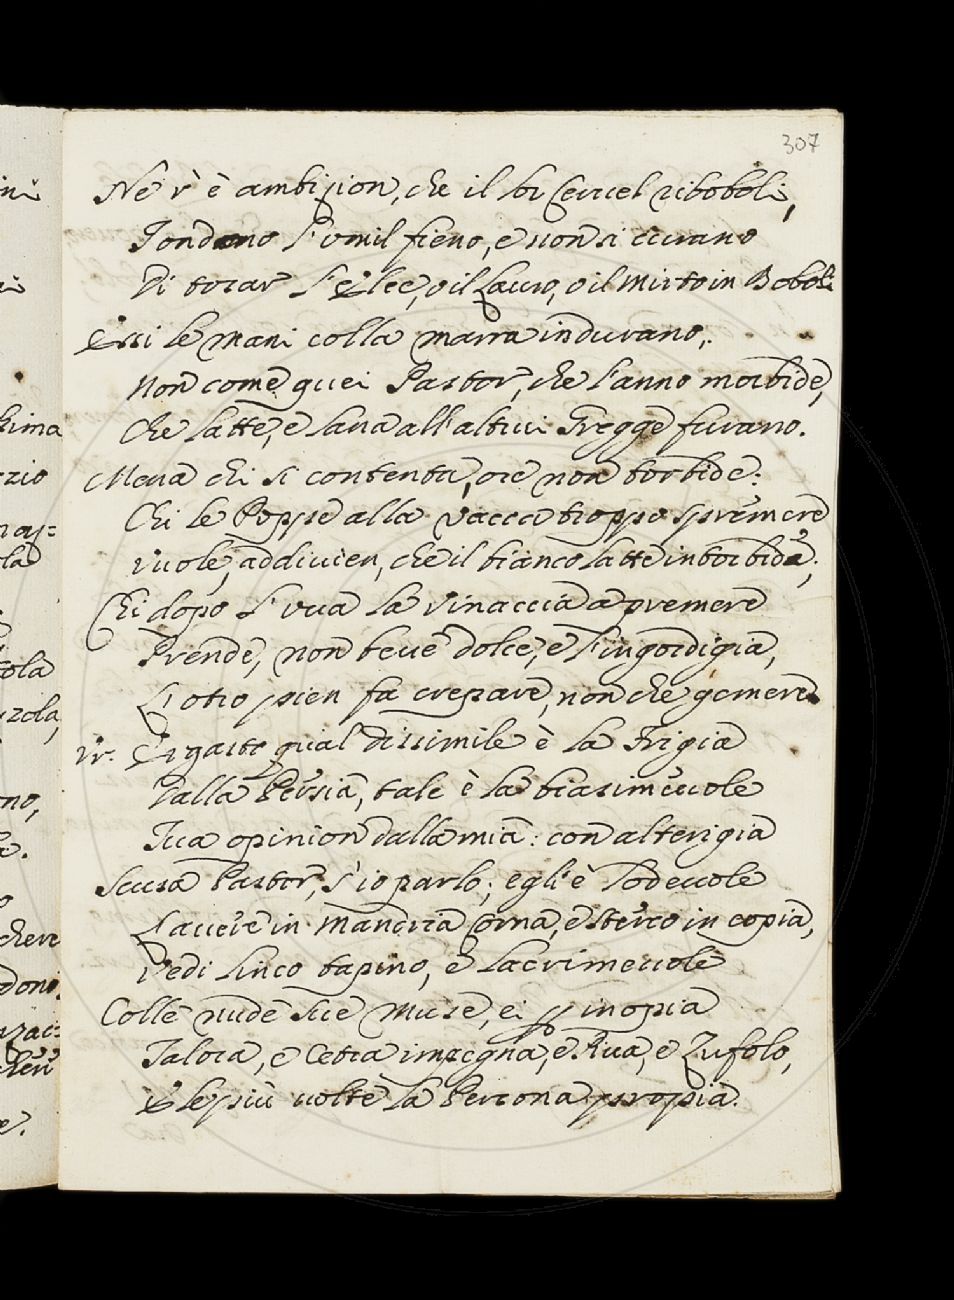 307
Nè v'è ambizion, che il lor Cervel riboboli,
Tondono l'umil fieno, e non si curano
Di tocar l'Elce, o il Lauro, o il Mirto in Boboli
Essi le mani colla marra indurano,
Non come quei Pastor, che l'anno morbide,
Che latte, e lana all'altrui Gregge furano.
Mena chi si contenta, ore non torbide:
Chi le Poppe alla vacca troppo spremere
vuole, addivien, che il bianco latte intorbida;
Chi dopo l'uva la vinaccia a premere
Prende, non beve dolce, e l'ingordigia,
L'otro pien fa crepare, non che gemere.
Vr. Ergasto qual dissimile è la Frigia
Dalla Persia, tale è la biasimevole
Tua opinion dalla mia: con alterigia
Scusa Pastor, s'io parlo; egli è lodevole
L'avere in Mandria Corna, e sterco in copia,
Vedi Linco tapino, e lacrimevole
Colle nude sue Muse, ei p inopia
Talora, e Cetra impegna, e Riva, e Zufolo,
E le più volte la Persona propria.
ini
kima
zio
la
tola
zola,
no,
chere
dono.